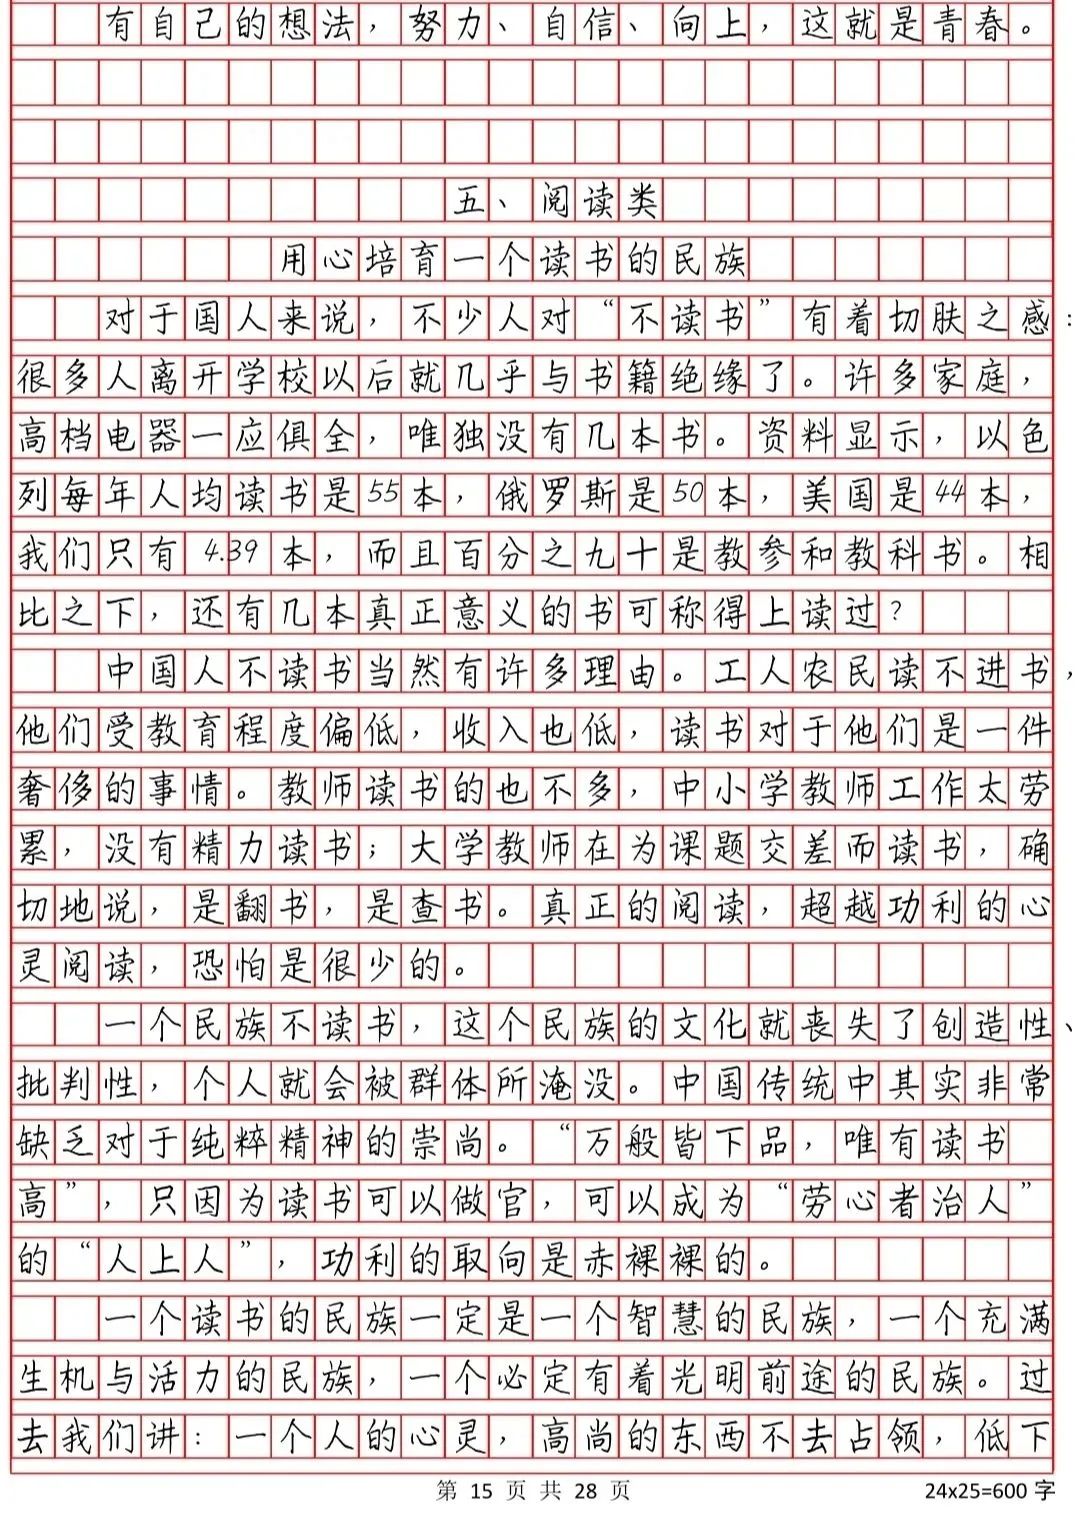 有自己的想法，努力、自信、向上，这就是青春。
五、阅读类
用心培育一个读书的民族
对于国人来说，不少人对“不读书”有着切肤之感：
很多人离开学校以后就几乎与书籍绝缘了。许多家庭，
高档电器一应俱全，唯独没有几本书。资料显示，以色
列每年人均读书是55本，俄罗斯是50本，美国是44本，
我们只有4.39本，而且百分之九十是教参和教科书。相
比之下，还有几本真正意义的书可称得上读过？
中国人不读书当然有许多理由。工人农民读不进书，
他们受教育程度偏低，收入也低，读书对于他们是一件
奢侈的事情。教师读书的也不多，中小学教师工作太劳
累，没有精力读书；大学教师在为课题交差而读书，确
切地说，是翻书，是查书。真正的阅读，超越功利的心
灵阅读，恐怕是很少的。
一个民族不读书，这个民族的文化就丧失了创造性、
批判性，个人就会被群体所淹没。中国传统中其实非常
缺乏对于纯粹精神的崇尚。“万般皆下品，唯有读书
高”，只因为读书可以做官，可以成为“劳心者治人”
的“人上人”，功利的取向是赤裸裸的。
一个读书的民族一定是一个智慧的民族，一个充满
生机与活力的民族，一个必定有着光明前途的民族。过
去我们讲：一个人的心灵，高尚的东西不去占领，低下
第 15 页 共 28 页
24x25=600 字